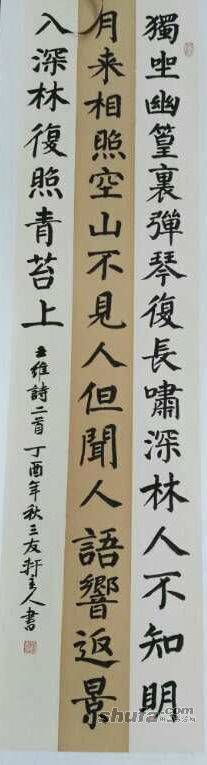 獨坐幽篁裏彈琴復長嘯深林人不知明
月来相照空山不見人但聞人語響返景
入深林復照青苔上
王維詩二首丁酉年秋三友軒主人書
shufa.com